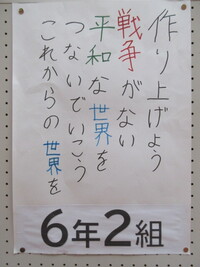 作り上げよう
戦争がない
平和な世界を
つないでいこう
これからの世界を
6年2組